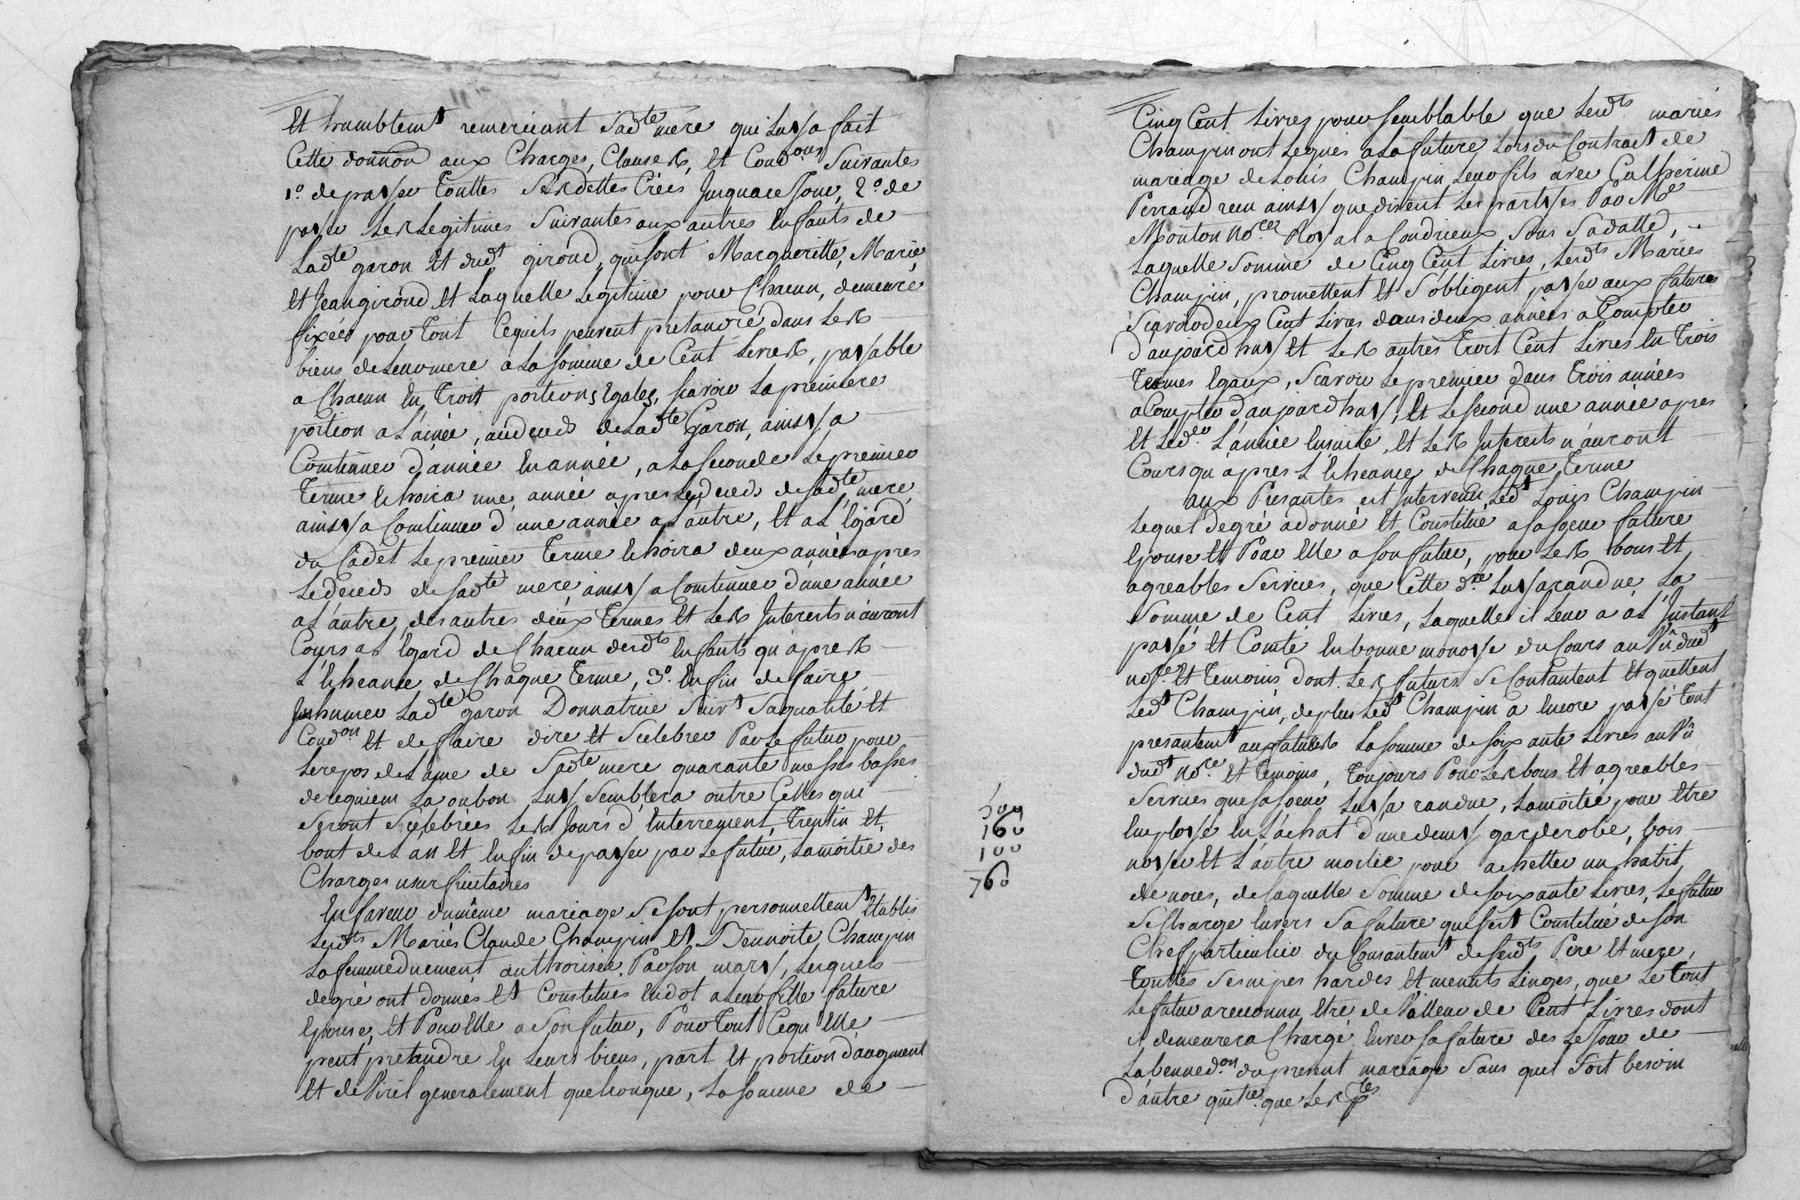 Et humblemt remerciant sadte mere qui luy a fait
Cette donnon aux Charges, Clauses, et Condons suivantes
1o. de payer touttes ses dettes Crées jusqu'a ce jour, 2o. de
payer les legitimes suivantes aux autres enfants de
ladte garon et dudt giroud, qui sont Margueritte, Marie
et jean giroud, et laquelle legitime pour Chacun, demeure
fixée pour tout ce qu'ils peuvent pretandre dans les
biens de leur mere a la somme de Cent livres, payable
a Chacun en trois portions egales, scavoir la premiere
portion a l'ainée, au deceds de ladte Garon, ainsy a
Continuer d'année en année, a la seconde le premier
terme echoira une année apres le deceds de sadte mere
ainsy a Continuer d'une année a l'autre, et a l'egard
du Cadet le premier terme echoira deux années apres
le deceds de sadte mere ainsy a Continuer d'une année
a l'autre, des autres deux termes et les Interests n'auront
Cours a l'egard de Chacun desdts enfants qu'apres
l'echeance de Chaque terme, 3o. enfin de faire
Inhumer ladte garon Donnatrice suivt sa qualité et
Condon et de faire dire et Scelebrer par le futur pour
le repos de l'ame de sadte mere quarante messes basses
de requiem la ou bon luy semblera outre Celles qui
seront Scelebrées les jours d'Enterrement, trentin et
bout de l'an et enfin de payer par le futur, la moitié des
Charges usurfruitaires
En faveur du même mariage se sont personnellemt Etablis
lesdts Mariés Claude Champin et Bennoite Champin
sa femme duement authorisée par son mary, lesquels
de gré ont donnés et Constitués en dot a leur fille future
Epouse, et pour elle a son futur, pour tout ce qu'elle
peut pretendre en leurs biens, part et portion d'augment
et de Viril generalement quelconque, la somme de
500
160
100
760
Cinq Cent livres pour semblable que lesdts mariés
Champin ont legués a la future lors du Contract de
mariage de Louis Champin leur fils avec Catherine
Perraud reçu ainsy que disent les partyes par Me
Mouton nore Royal a Condrieux sous sa datte,
laquelle somme de Cinq Cent livres, lesdts Mariés
Champin, promettent et s'obligent payer aux futurs
scavoir deux Cent livres dans deux années a Compter
d'aujourd'huy et les autres trois Cent livres en trois
termes egaux, scavoir le premier dans trois années
a Compter d'aujourd'huy, et le second une année apres
et le der l'année ensuite, et les Interests n'auront
Cours qu'apres l'echeance de Chaque terme
aux Presantes est Intervenu ledt Louis Champin
lequel de gré a donné et Constitué a sa soeur future
Epouse et pour elle a son futur, pour les bons et
agreables services, que cette dre luy a randue, la
somme de Cent livres, laquelle il leur a a l'Instant
payé et Compté en bonne monoye du Cours au Vû dudt
nore et temoins dont les futurs se Contantent et quittent
ledt Champin, de plus ledt Champin a encore payé tout
presantemt aux futurs la somme de soixante livres au Vû
dudt nore et temoins, toujours pour les bons et agreables
services que sa soeur luy a randue, la moitié pour etre
Employé en l'achat d'une demy garderobe, bois
noyer et l'autre moitié pour achetter un habit
de noces, de laquelle somme de soixante livres, le futur
se Charge envers sa future qui s'est Constitué de son
Chef particulier du Consantemt de sesdts Pere et mere,
touttes ses nipes hardes et menuts linges, que le tout
le futur a reconnu etre de Valleur de Cent livres dont
il demeurera Chargé envers sa future des le jour de
la bennedon du present mariage sans quil soit besoin
d'autre quitce que les ptes